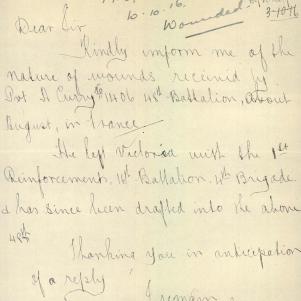 10.10.16
Wounded
3-10-16
Dear Sir
Kindly inform me of the
nature of wounds received by
Pvt A Curry 1406 48th Battalion, about
August, in France
He left Victoria with the 1st
Reinforcements. 14th Battalion. 4th Brigade.
& has since been drafted into the above
48th
Thanking you in anticipation
of a reply
I remain